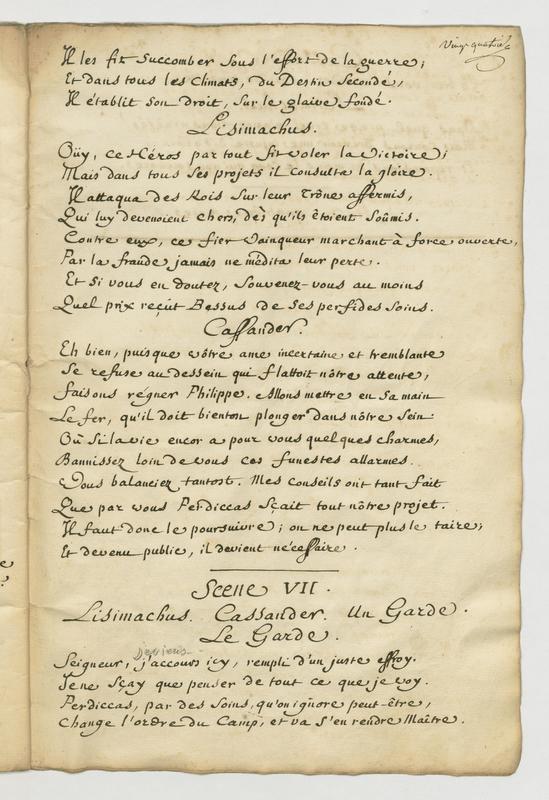 Vingt quatre
Il les fit succomber sous l'effort de la guerre;
Et dans tous les climats, du Destin secondé,
Il établit son droit, sur le glaive fondé.
Lisimachus.
Oüy, ce Héros par tout fit voler la victoire;
Mais dans tous ses projets il consulta la gloire.
Il attaqua des Rois sur leur Trône affermis,
Qui luy devenoient chers, dès qu'ils étoient soûmis.
Contre eux, ce fier vainqueur marchant à force ouverte,
Par la fraude jamais ne médita leur perte.
Et si vous en doutez, souvenez-vous au moins
Quel prix reçût Bessus de ses perfides soins.
Cassander.
Eh bien, puisque vôtre ame incertaine et tremblante
Se refuse au dessein qui flattoit nôtre attente,
faisons régner Philippe. Allons mettre en sa main
Le fer, qu'il doit bientost plonger dans nôtre sein
Où si la vie encor a pour vous quelques charmes,
Bannissez loin de vous ces funestes allarmes.
Vous balanciez tantost. Mes conseils ont tant fait
Que par vous Perdiccas sçait tout nôtre projet.
Il faut donc le poursuivre; on ne peut plus le taire;
Et devenu public, il devient nécessaire.
Scene VII.
Lisimachus. Cassander. Un Garde.
Le Garde.
Seigneur, j'accours icy, rempli d'un juste effroy.
Je ne sçay que penser de tout ce que je voy.
Perdiccas, par des soins, qu'on ignore peut-être,
Change l'ordre du Camp, et va s'en rendre Maître.